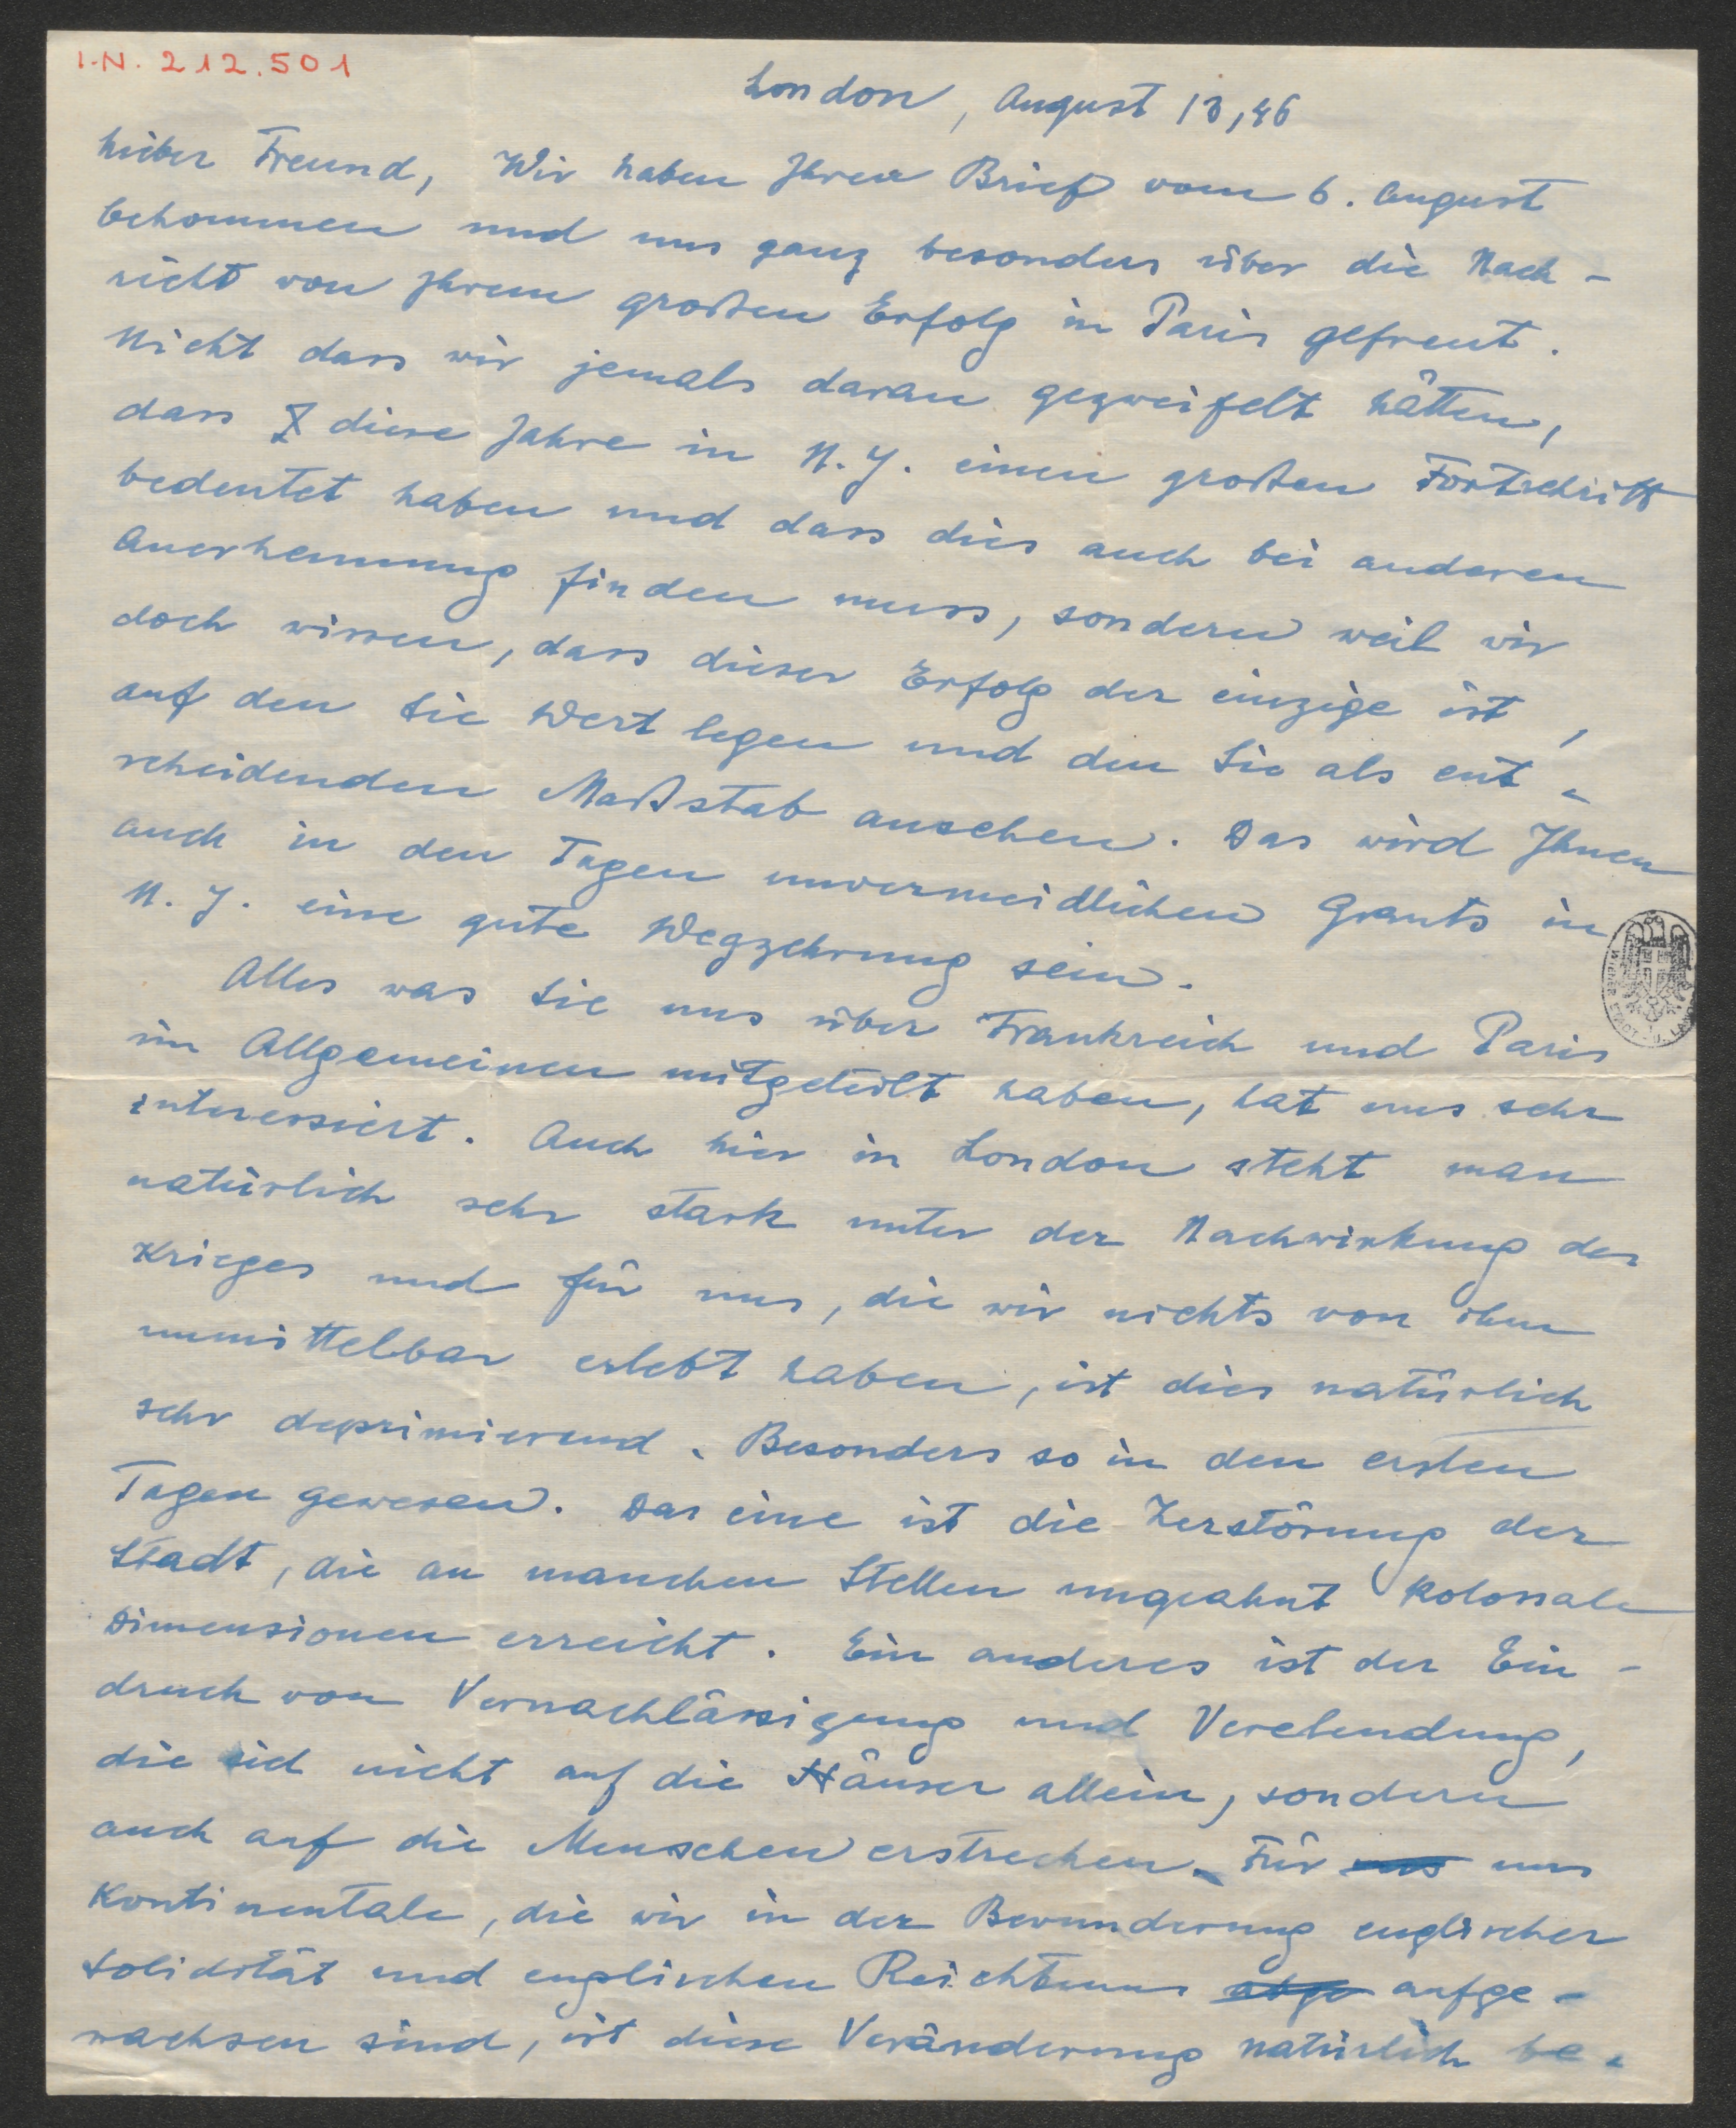 I.N. 212.501
London, August 13, 46
Lieber Freund, Wir haben Ihren Brief vom 6. August
bekommen und uns ganz besonders über die Nach-
richt von Ihrem großen Erfolg in Paris gefreut.
Nicht dass wir jemals daran gezweifelt hätten,
dass diese Jahre in N.Y. einen großen Fortschritt
bedeutet haben und dass dies auch bei anderen
Anerkennung finden muss, sondern weil wir
doch wissen, dass dieser Erfolg der einzige ist,
auf den Sie Wert legen und den Sie als ent-
scheidenden Maßstab ansehen. Das wird Ihnen
auch in den Tagen unvermeidlichen Grants in
N.Y. eine gute Wegzehrung sein.
Alles was Sie uns über Frankreich und Paris
im Allgemeinen mitgeteilt haben, hat uns sehr
interessiert. Auch hier in London steht man
natürlich sehr stark unter der Nachwirkung des
Krieges und für uns, die wir nichts von ihm
unmittelbar erlebt haben, ist dies natürlich
sehr deprimierend. Besonders so in den ersten
Tagen gewesen. Das eine ist die Zerstörung der
Stadt, die an manchen Stellen ungeahnt kolossale
Dimensionen erreicht. Ein anderes ist der Ein-
druck von Vernachlässigung und Verelendung,
die sich nicht auf die Häuser allein, sondern
auch auf die Menschen erstrecken. Für uns
Kontinentale, die wir in der Bewunderung englischer
Solidität und englischen Reichtums aufge-
wachsen sind, ist diese Veränderung natürlich be-